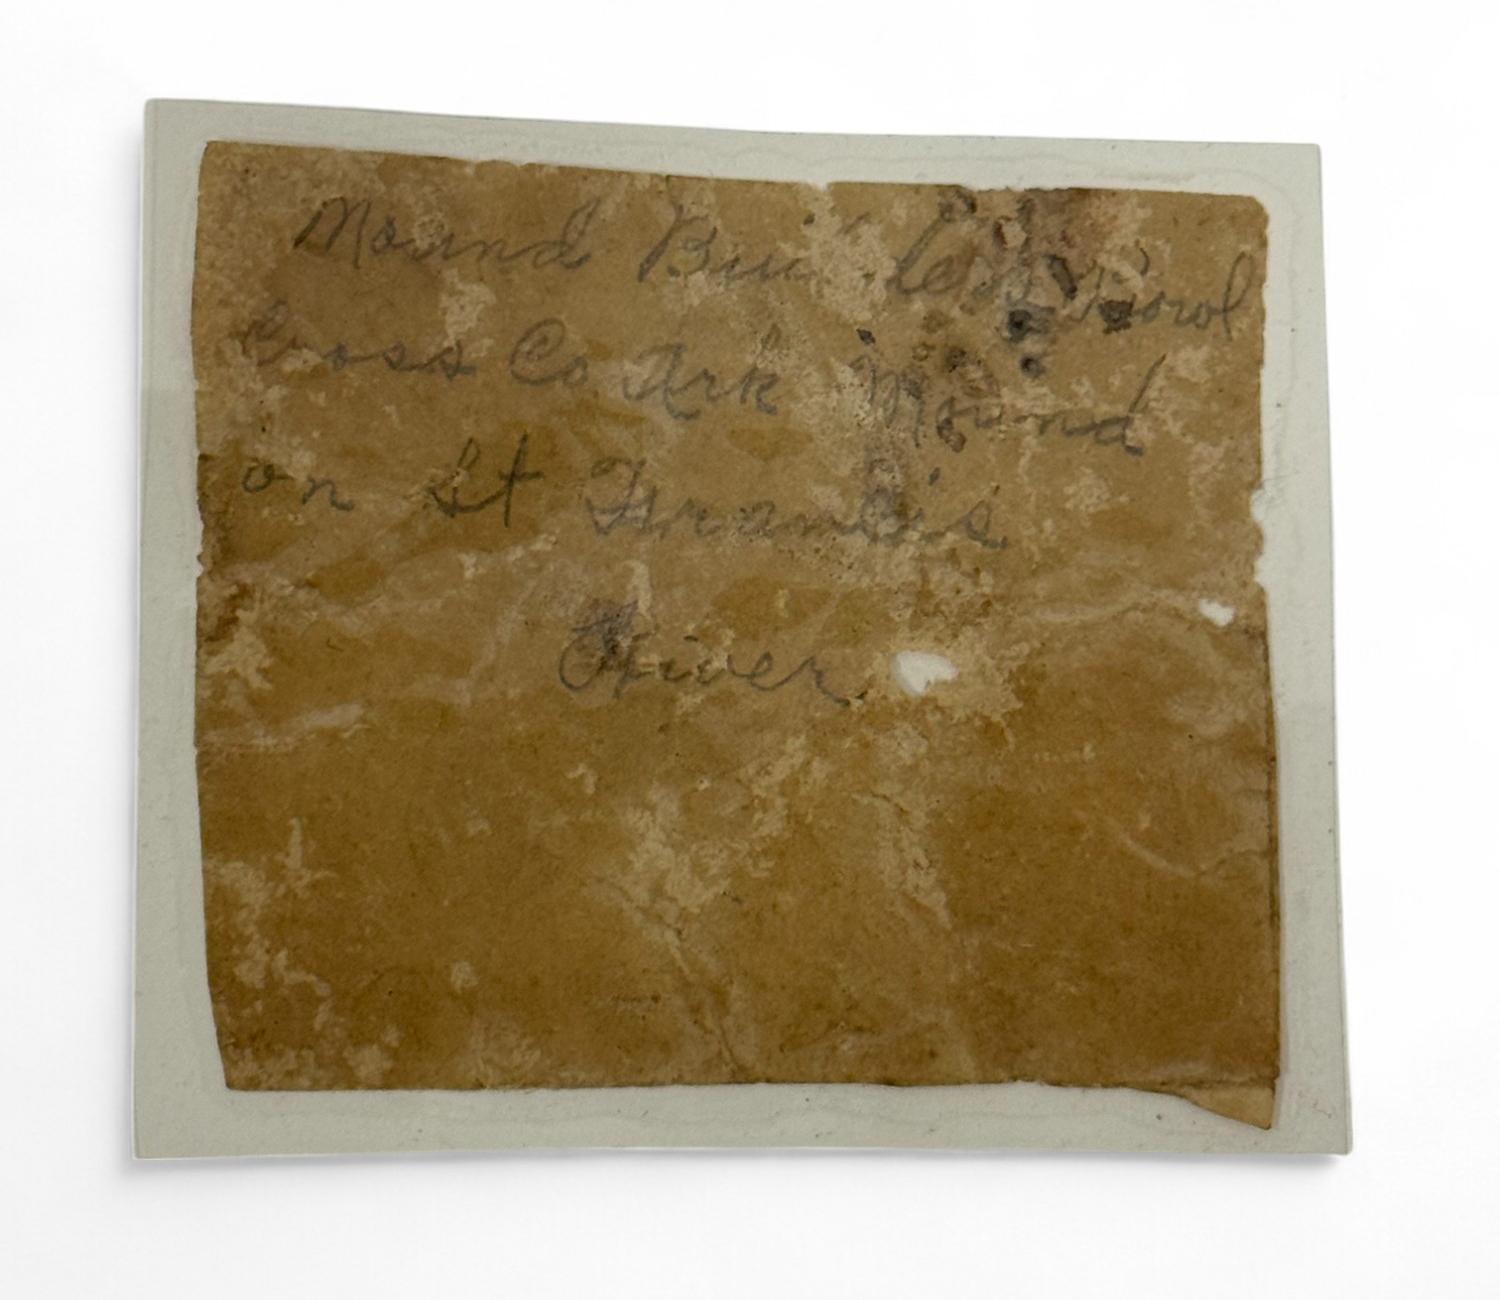 Mound Builders Bowl
Cross Co Ark Mound
on St Francis
River